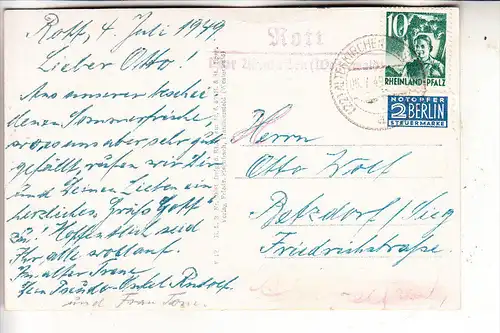 Rott, 4. Juli 1949
Lieber Otto!
Aus unserer beschei-
denen Sommerfrische,
wo es uns aber sehr gut
gefällt, rufen wir Dir
und Deinen Lieben ein
herzliches „Grüß Gott"
zu! Hoffentlich seid
Ihr alle wohlauf.
Dein Pseudo-Onkel Rudolf
und Frau
Rott
ALTENKIRCHEN
10
RHEINLAND-PFALZ
NOTOPFER
2 BERLIN
STEUERMARKE
Herrn
Otto Wolf
Betzdorf/Sieg
Friedrichstraße